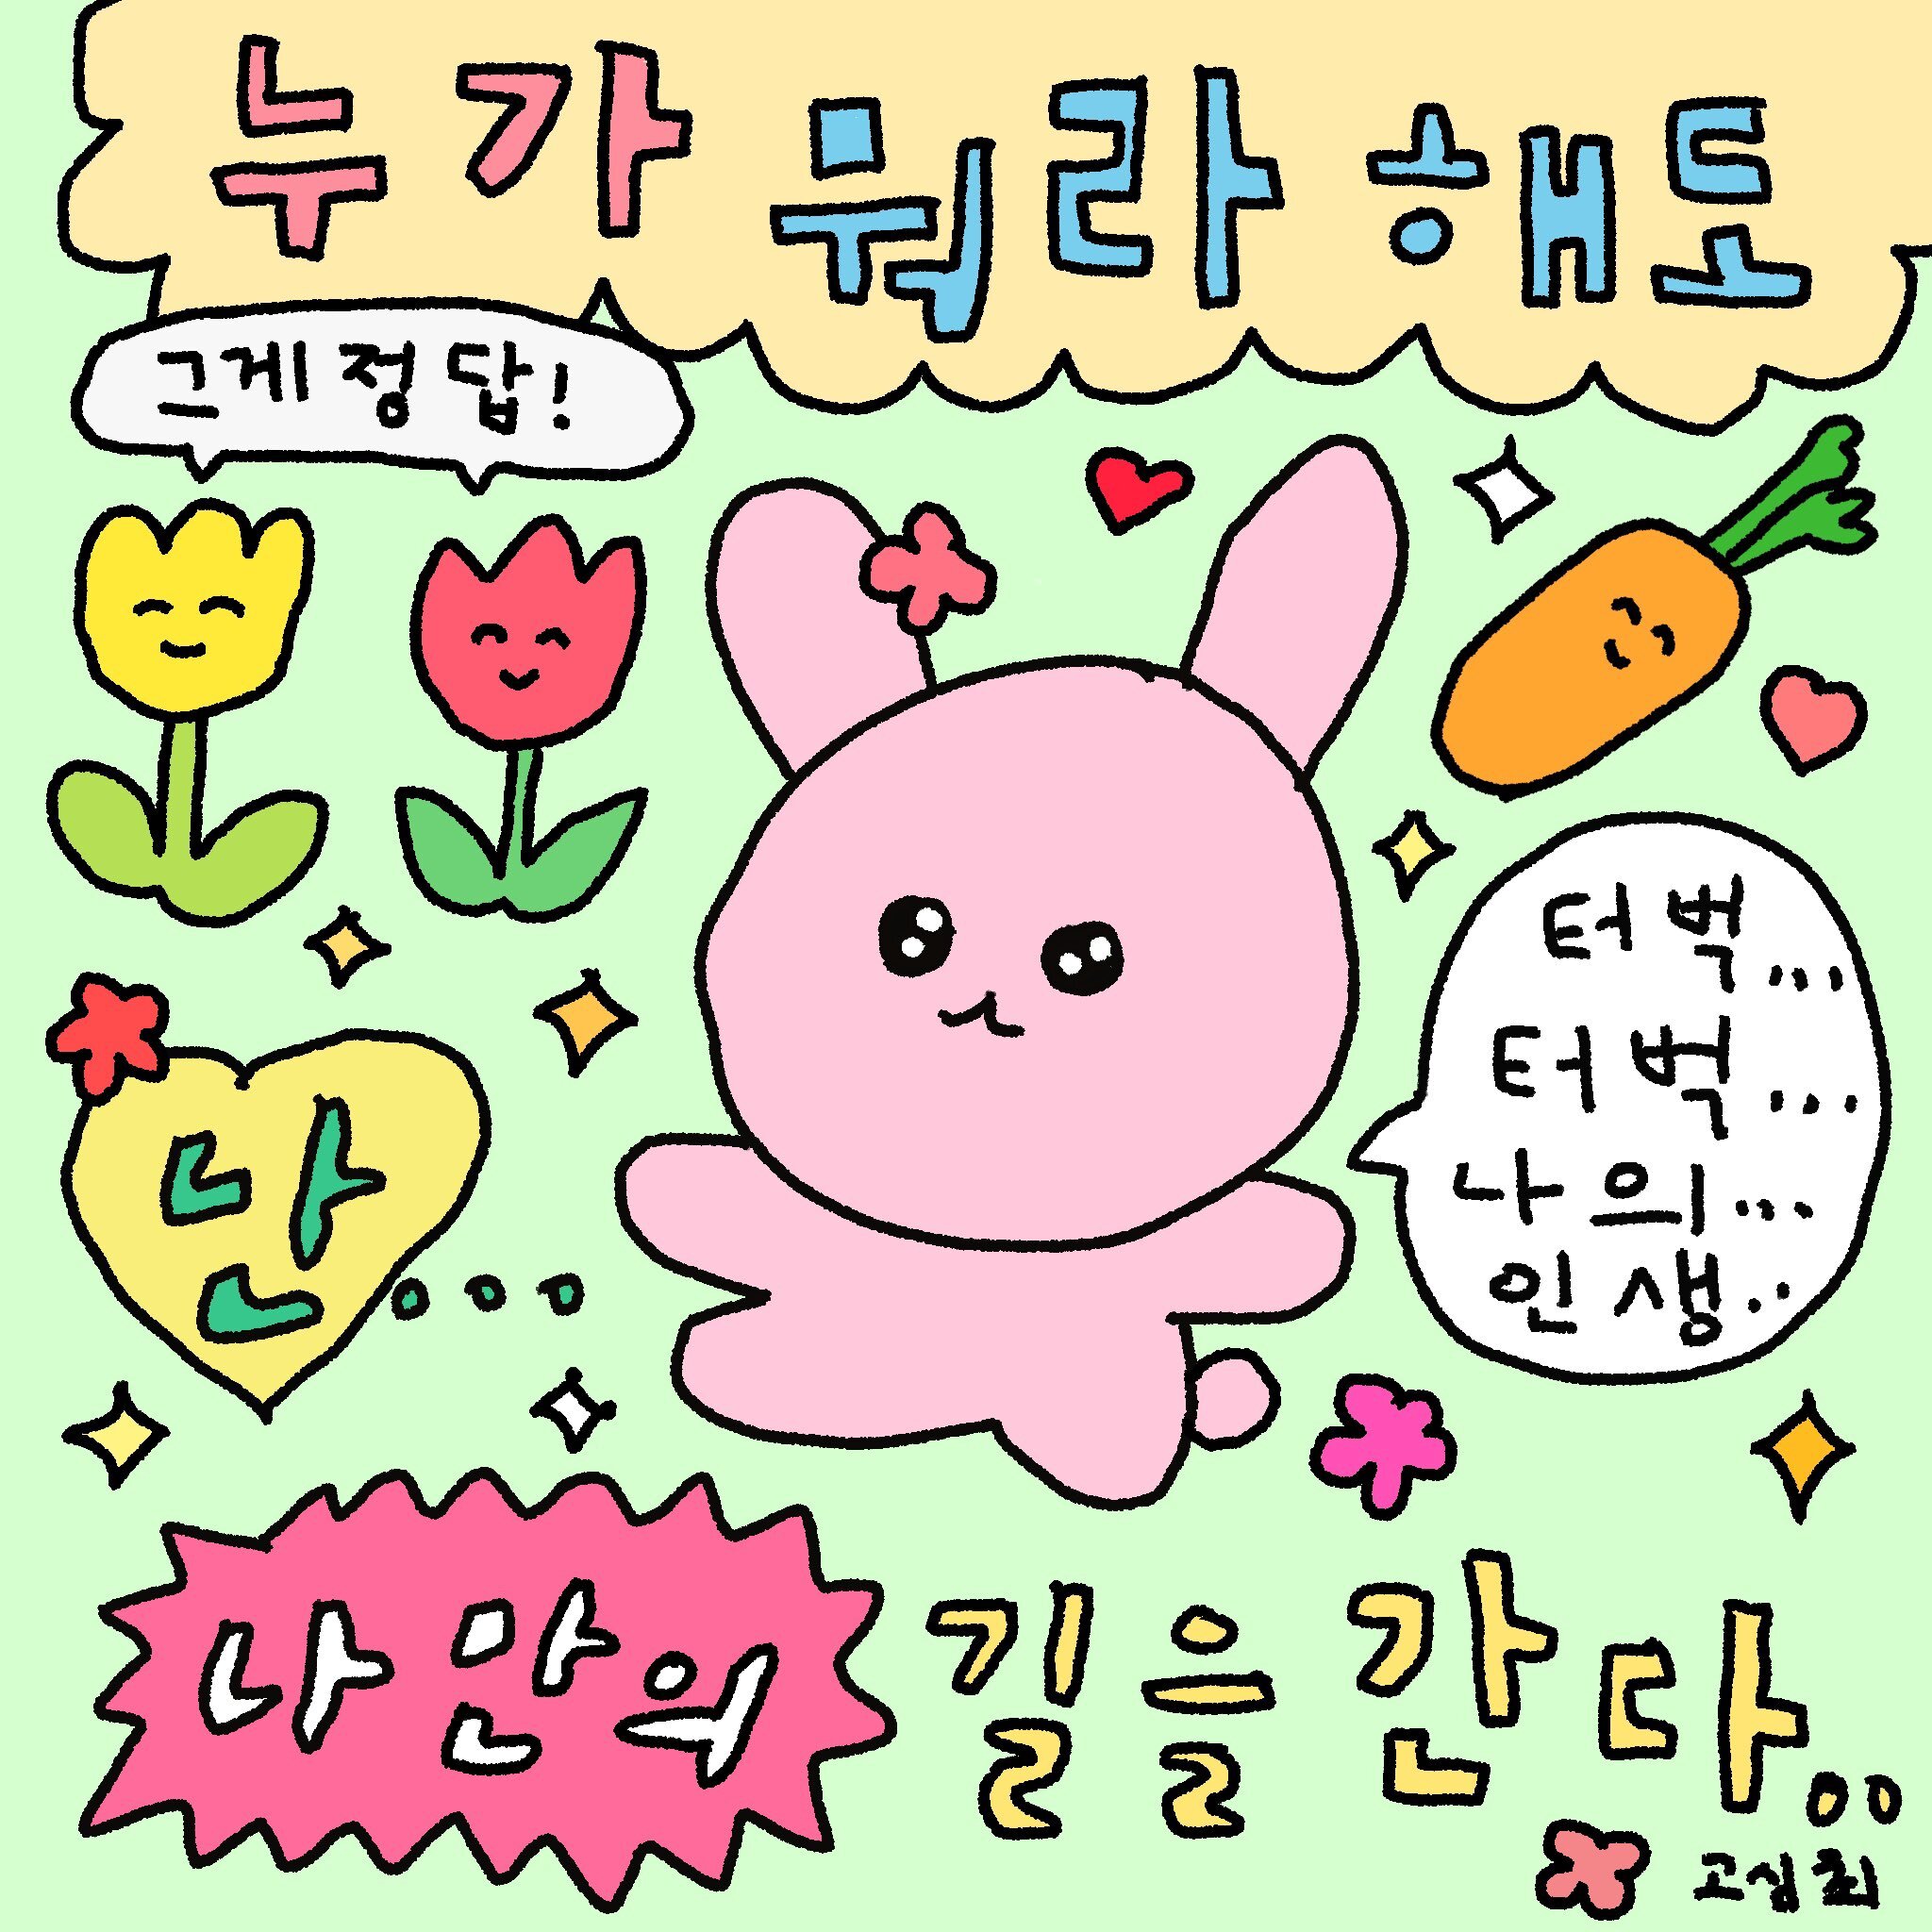 누가 뭐라해도
그게 정답!
터벅...
터벅...
나의...
인생..
난...
나만의 길을 간다..
고심회